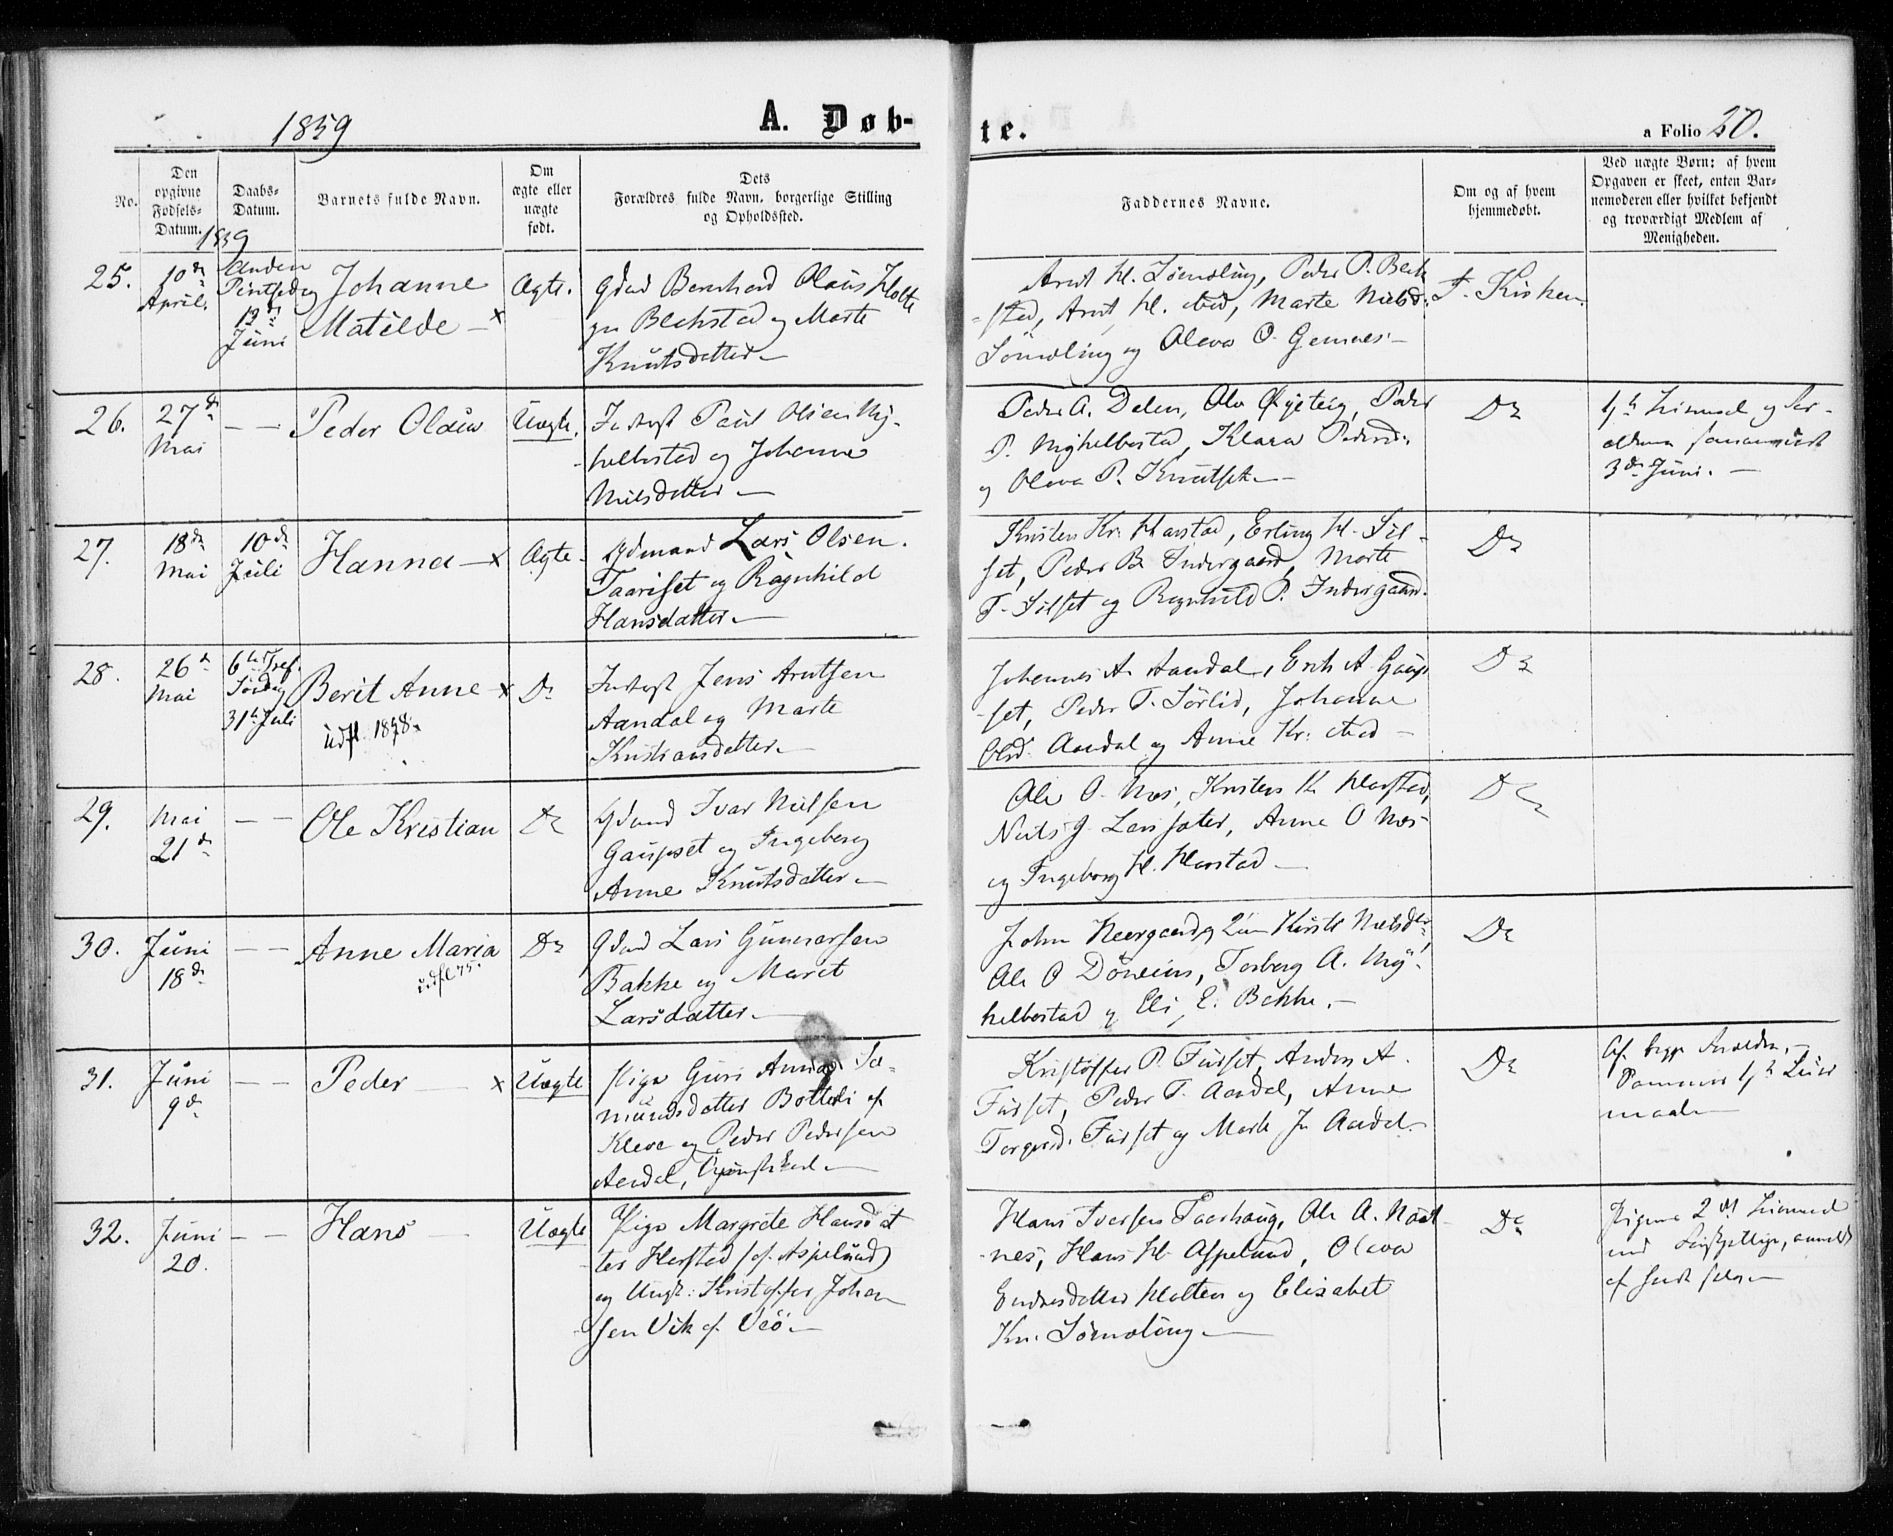 1859
A. Døb-
te.
a Folio 20.
No.
Den
opgivne
Fødsels-
Datum.
Daabs-
Datum.
Barnets fulde Navn.
Om
ægte eller
uægte
født.
Dets
Forældres fulde Navn, borgerlige Stilling
og Opholdssted.
Faddernes Navne.
Om og af hvem
hjemmedøbt.
Ved uægte Børn: af hvem
Opgaven er skeet, enten Bar-
nemoderen eller hvilket bekjendt
og troværdigt Medlem af
Menigheden.
1859
25.
10de
April.
Anden
Pintsedag
12te
Juni
Johanne
Matilde x
Ægte.
Gdmd Bernhard Olaus Holte
Blekstad og Marte
Knutsdatter
Arnt H. Sømoling, Peder P. Blek
-stad, Arnt H. sted, Marte Nielsd.
Sømoling og Oleva O.
I Kirken.
26.
27de
Mai
Peder Olaus
Uægte.
Inderst Paul Olsen Myk-
helbostad og Johanne
Nielsdatter
Peder A. Dalen, Ole Øyeteig, Peder
P. Myklebostad, Klara Pedersd.
og Oleva P. Knutset
Do
3de Juni.
27.
18de
Mai
10de
Juli
Hanna x
Ægte
Gdmand Lars Olsen
Taariset og Ragnhild
Hansdatter
Kristen Kr. Harstad, Erling H. Sil-
set, Peder B. Indergaard, Marte
T. Silset og Ragnhild P. Indergaard.
Do
28.
26de
Mai
6te S. Tref.
Søndag
31te Juli
Berit Anne x
udfl. 1878.
Do
Inderst Jens Arntsen
Aandal og Marte
Kristiansdatter
Johannes A. Aandal, Erik A. Gaup-
set, Peder T. Sørlid, Johanne
Olsd. Aandal og Anne Kr. sted
Do
29.
Mai
21de
Ole Kristian
Do
Gdmd Ivar Nielsen
Gaupset og Ingeborg
Anne Knutsdatter
Ole O. Næs, Kristen K. Harstad,
Niels J. Larssæter, Anne O Næs
og Ingeborg H. Harstad
Do
30.
Juni
18de
Anne Maria
udfl 75.
Do
Gdmd Lars Gunnarsen
Bakke og Marit
Larsdatter
John Neergaard, Kirsti Nielsdtr,
Ole O, Torberg A. Myk-
helbostad og Eli E. Bakke.
Do
31.
Juni
9de
Peder x
Uægte
Pige Guri Sæ-
mundsdatter Botteli af
Kleve og Peder Pedersen
Aandal,
Kristoffer P. Furset, Anders A.
Furset, Peder T. Aandal, Anne
Torgersd. Furset og Marte J. Aandal.
Do
Af begge Forældre,
32.
Juni
20.
Hans
Uægte
Pige Margrete Hansdat
ter Harstad (af Aspelund)
og Ungk: Kristoffer Johan
sen Vik af Veø
Hans Iversen Taarhaug, Ole A. Naast-
nes, Hans H. Aspelund, Oleva
Endresdatter Holten og Elisabet
Kn. Sømoling
Do
Pigens 2det Leiermaal